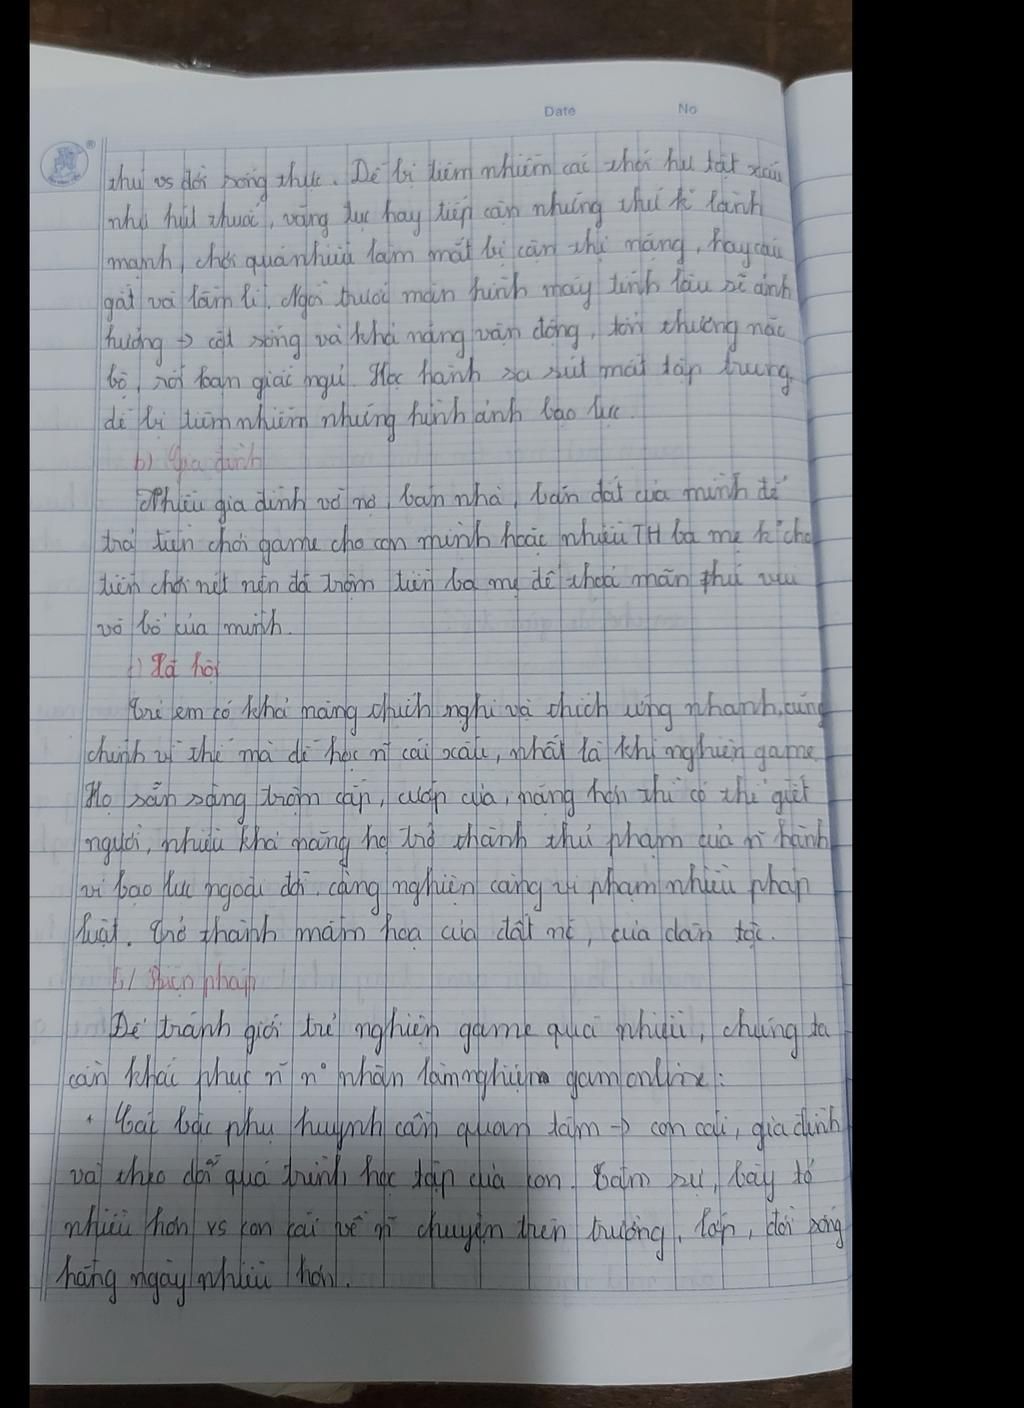 Date No
thú vs đời sống thực. Dễ bị tiêm nhiễm cái thói hư tật xấu
như hút thuốc, văng tục hay tiếp cận những thứ k lành
mạnh, chơi quá nhiều làm mắt bị cận thị nặng, hay cáu
gắt và lầm lì. Ngồi trước màn hình máy tính lâu sẽ ảnh
hưởng → cột sống và khả năng vận động, tổn thương não
bộ, rối loạn giấc ngủ. Học hành sa sút mất tập trung,
dễ bị tiêm nhiễm những hình ảnh bạo lực.
b) Gia đình
Nhiều gia đình vỡ nợ, bán nhà, bán đất của mình để
trả tiền chơi game cho con mình hoặc nhiều TH ba mẹ k cho
tiền chơi nét nên đã trộm tiền ba mẹ để thoả mãn thú vui
vô bổ của mình.
c) Xã hội
Trẻ em có khả năng thích nghi và thích ứng nhanh, cũng
chính vì thế mà dễ học n~ cái xấu, nhất là khi nghiện game.
Họ sẵn sàng trộm cắp, cướp của, nặng hơn thì có thể giết
người, nhiều khả năng họ trở thành thủ phạm của n~ hành
vi bạo lực ngoài đời, càng nghiện càng vi phạm nhiều pháp
luật. Trở thành mầm họa của đất nc, của dân tộc.
5/ Biện pháp
Để tránh giới trẻ nghiện game quá nhiều, chúng ta
cần khắc phục n~ n° nhân làm nghiện gam online:
+ Các bậc phụ huynh cần quan tâm → con cái, gia đình
và theo dõi quá trình học tập của con. Tâm sự, bày tỏ
nhiều hơn vs con cái về n~ chuyện trên trường, lớp, đời sống
hằng ngày nhiều hơn.